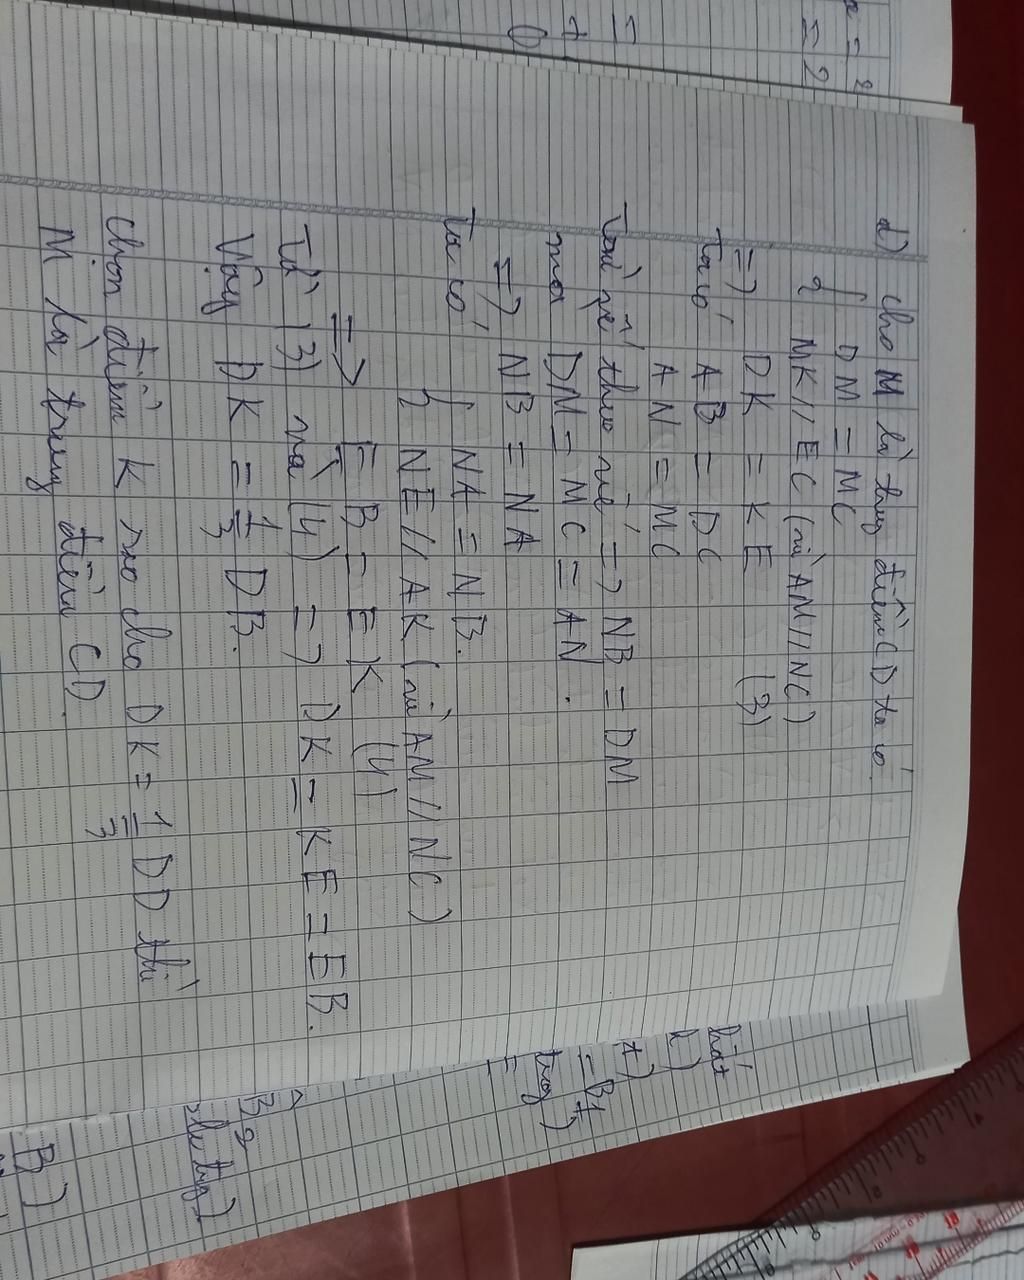 d) Cho M là trug điểm CD ta có
{ DM = MC
MK // EC (vì AM // NC)
=> DK = KE (3)
Ta có AB = DC
AN = MC
Trừ vế theo vế => NB = DM
mà DM = MC = AN.
=> NB = NA
Ta có { NA = NB.
NE // AK (vì AM // NC)
=> EB = EK (4)
Từ (3) và (4) => DK = KE = EB.
Vậy DK = 1/3 DB.
Chọn điểm K sao cho DK = 1/3 DD thì
M là trung điểm CD.
= 2
B)